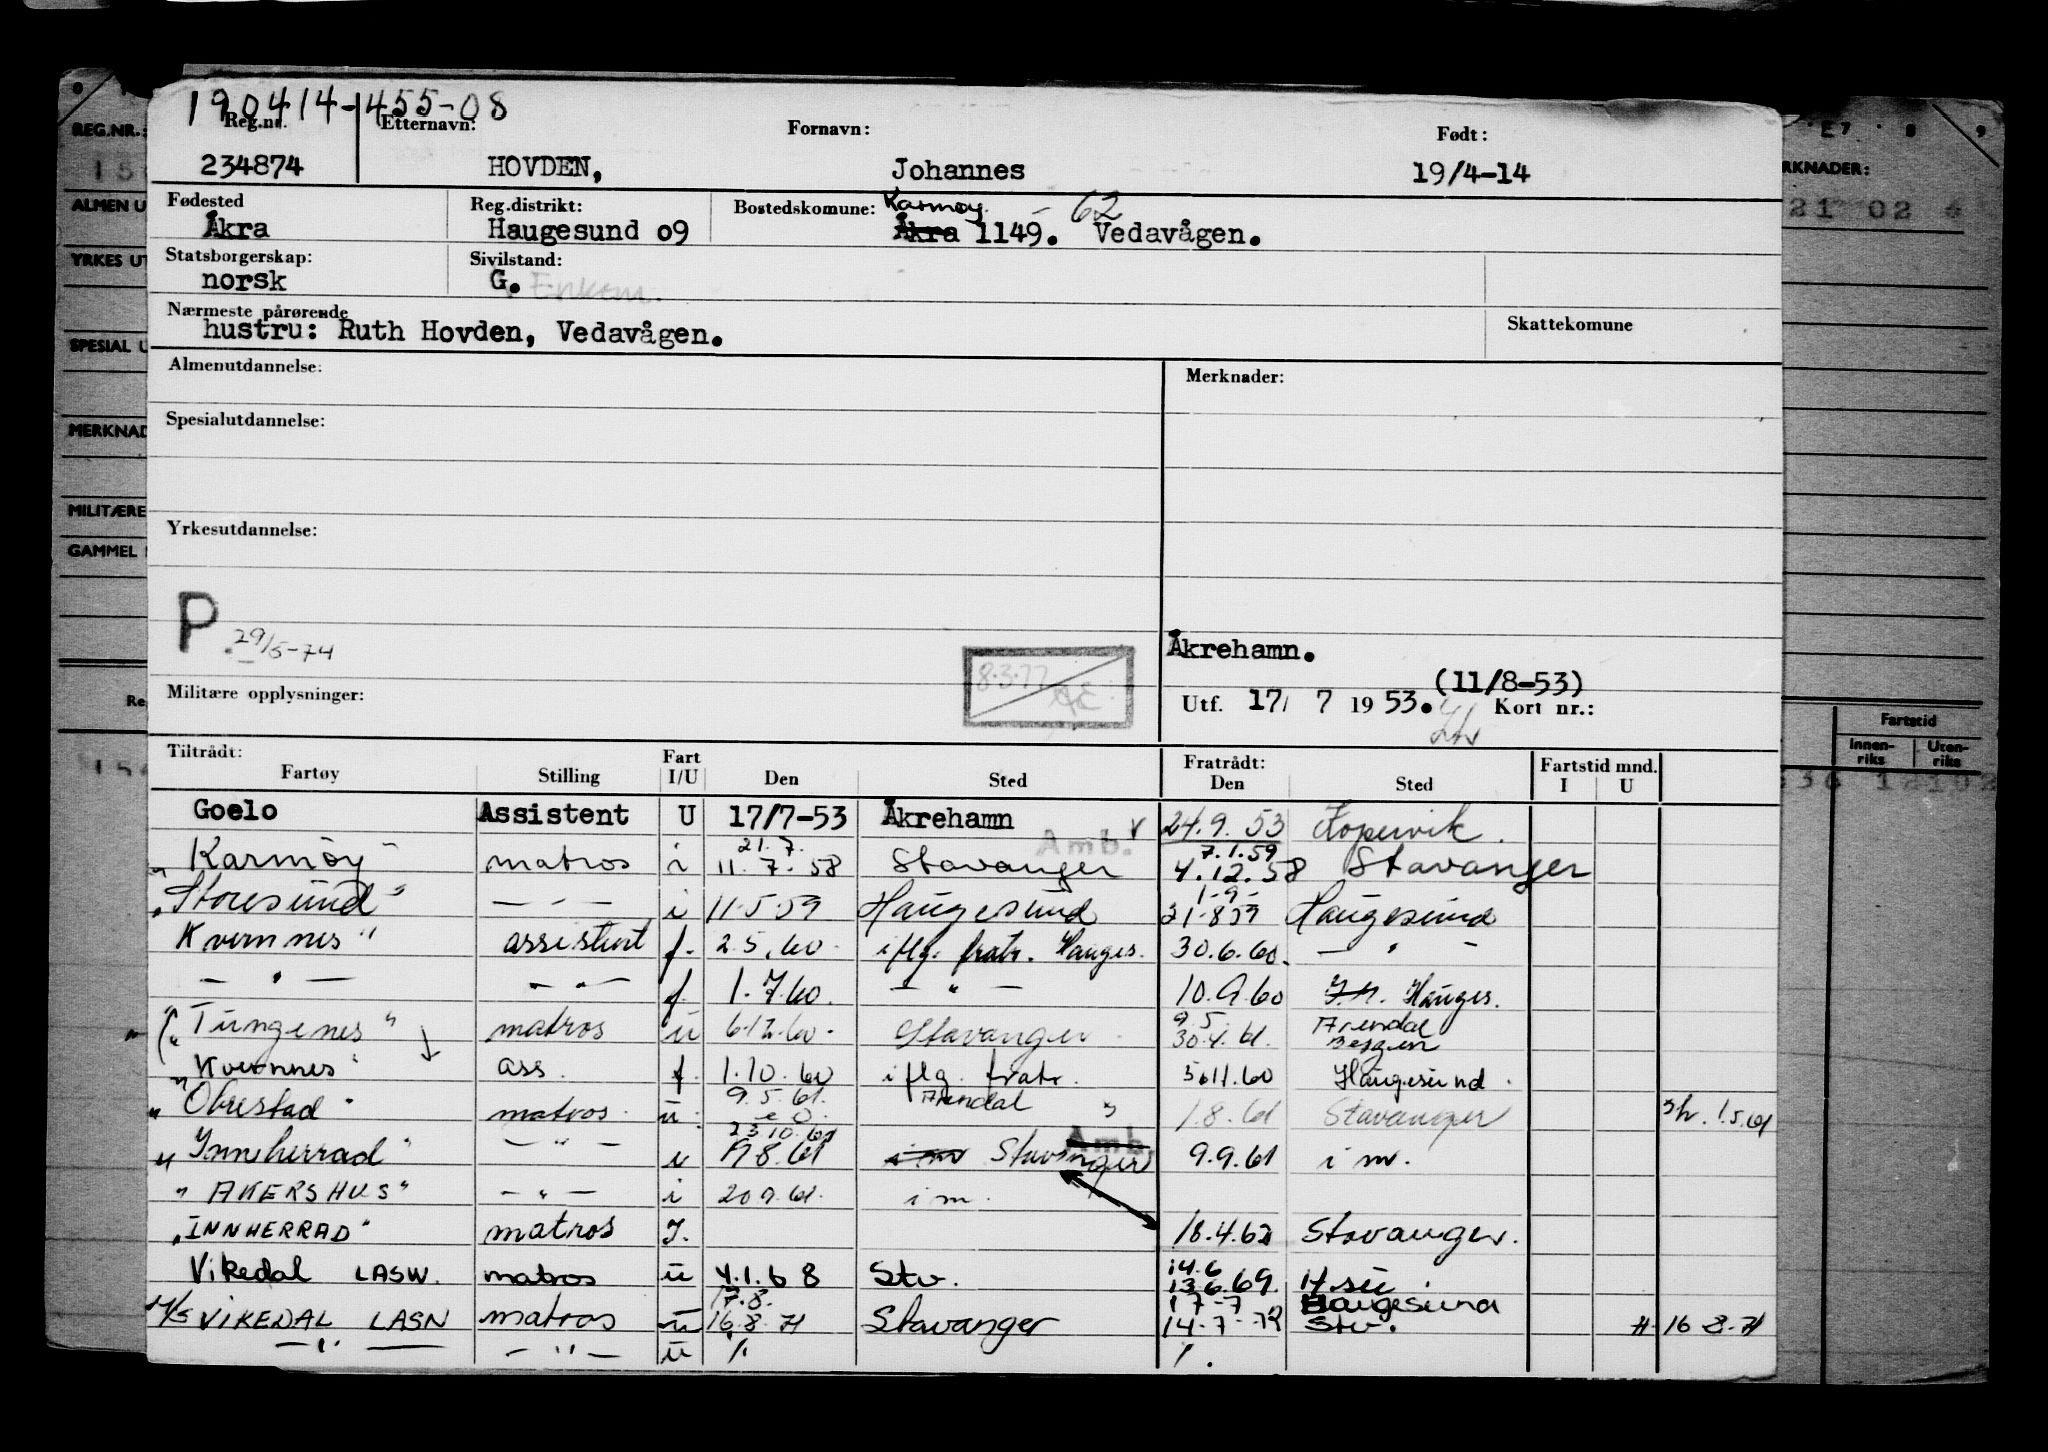 190414-455-08
Reg.nr. Etternavn: Fornavn: Født:
234874 HOVDEN, Johannes 19/4-14
Fødested Reg.distrikt: Bostedskomune: Karmøy - 62
Åkra Haugesund 09 Åkra 1149. Vedavågen.
Statsborgerskap: Sivilstand:
norsk G. Enkem.
Nærmeste pårørende Skattekomune
hustru: Ruth Hovden, Vedavågen.
Almenutdannelse: Merknader:
Spesialutdannelse:
Yrkesutdannelse:
P 29/5-74
Åkrehamn.
8.3.77 (11/8-53)
Militære opplysninger: Utf. 17/ 7 1953. Kort nr.:
Tiltrådt: Fart Fratrådt: Fartstid mnd.
Fartøy Stilling I/U Den Sted Den Sted I U
Goelo Assistent U 17/7-53 Åkrehamn 24.9.53 Kopervik.
21.7. Amb. 7.1.59
Karmøy matros i 11.7.58 Stavanger 4.12.58 Stavanger
1-9-
"Storesund" — " — i 11.5.59 Haugesund 31-8 59 Haugesund
Kvernnes" assistent f. 2.5.60 iflg. fratr. Hauges. 30.6.60. — " —
— " — — " — f. 1.7.60. — " — 10.9.60 Hauges.
9 5 Arendal
"Tungenes" matros u 6.12.60. Stavanger 30.4.61. Bergen
Kvernnes" ass. f. 1.10.60 iflg. fratr. 5.11.60 Haugesund.
9.5.61. Arendal "
"Obrestad" matros u. 1.8.61 Stavanger 1.5.61
23.10.61 Amb.
"Innherrad" — " — i 19.8.61 i m Stavanger 9.9.61 i m.
"AKERSHUS" — " — i 20.9.61. i m.
"INNHERRAD" matros I. 18.4.62 Stavanger.
14.6
Vikedal LASW. matros u 4.1.68 Stv. 13.6.69. H.su
17.8. 17-7 Haugesund
M/S VIKEDAL LASN matros u 16.8.71 Stavanger 14-7-72 Stv. H. 16-8-71
— " — — " — u
REG.NR.:
ALMEN U
YRKES UT
SPESIAL U
MERKNAD
MILITÆRE
GAMMEL
Re
E7 8 9
RKNADER:
21 02
Fartstid
Innenriks Utenriks